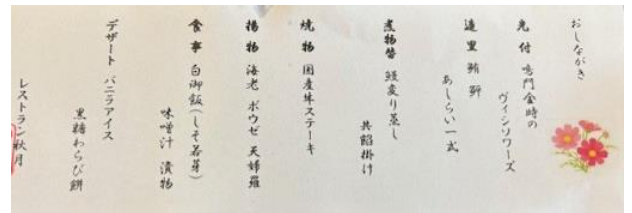 おしながき
先付 鳴門金時の
ヴィシソワーズ
造里 鮪 鰤
あしらい一式
煮物替 鰻変り蒸し
共餡掛け
焼物 国産隼ステーキ
揚物 海老 ボウゼ 天婦羅
食事 白御飯(しそ若芽)
味噌汁 漬物
デザート バニラアイス
黒糖わらび餅
レストラン秋月